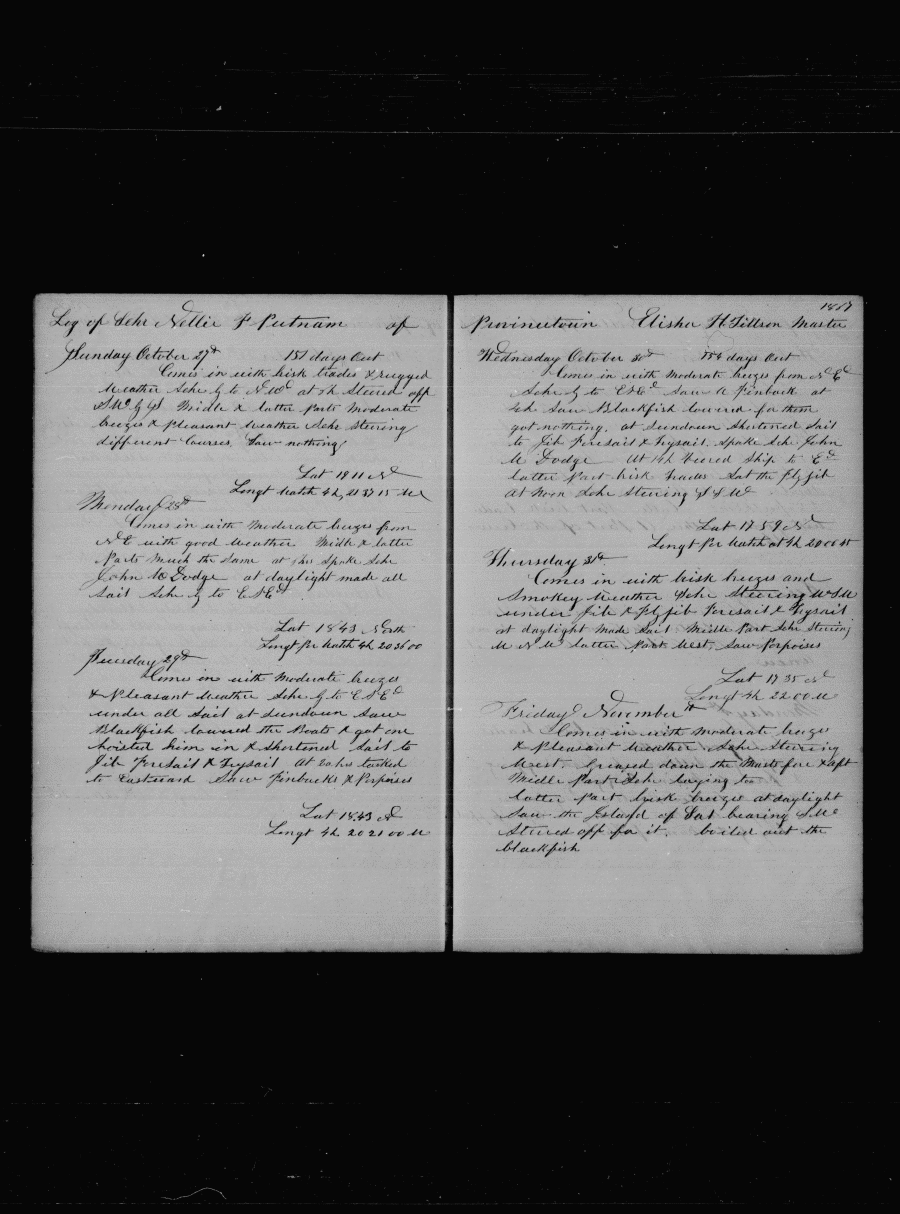 Log of Schr Nellie F Putnam of
Sunday October 27th 151 days Out
Comes in with brisk trades & rugged
Weather Schr by to N.Wd at 4h Steered off
SW by S Middle & latter Parts Moderate
breezes & Pleasant Weather Schr Steering
different Courses. Saw nothing
Lat 19 11 N
Longt Watch 4h 21 37 15 W
Monday 28th
Comes in with Moderate breezes from
N.E with good Weather Middle & latter
Parts Much the Same at Spoke Schr
John W Dodge at daylight made all
Sail Schr by to E.S.Ed
Lat 18 43 North
Longt per Watch 4h 20 36 00
Tuesday 29th
Comes in with Moderate breezes
& Pleasant Weather Schr by to E.S.Ed
under all Sail at Sundown Saw
Blackfish lowered the Boats & got one
hoisted him in & Shortened Sail to
Jib ForeSail & Trysail At tacked
to Eastward Saw Finbacks & Porpoises
Lat 18.43 N
Longt 4h 20 21 00 W
1867
Provincetown Elisha H. Tillson Master
Wednesday October 30th 154 days Out
Comes in with Moderate breezes from N.Ed
Schr by to E.S.Ed Saw A Finback at
Saw Blackfish lowered for them
got nothing. at Sundown Shortened Sail
to Jib Foresail & Trysail. Spoke Schr John
W Dodge At 4h Veered Ship to Ed
latter Part brisk trades Set the Fly jib
At Noon Schr Steering S.S.W
Lat 17 59 N
Longt per Watch at 4h 20 06 45
Thursday 31st
Comes in with brisk breezes and
Smokey Weather Schr Steering W.S.W
under Jib & Fly jib Foresail & Trysail
at daylight Made Sail Middle Part Schr Steering
W N W latter Part West. Saw Porpoises
Lat 17 35 N
Longt 4h 22 00 W
Friday November 1st
Comes in with Moderate breezes
& Pleasant Weather Schr Steering
West. Greased down the Masts fore & aft
Middle Part Schr laying too
latter Part brisk breezes at daylight
Saw the Island of Sal bearing S.W
Steered off for it. boiled out the
blackfish